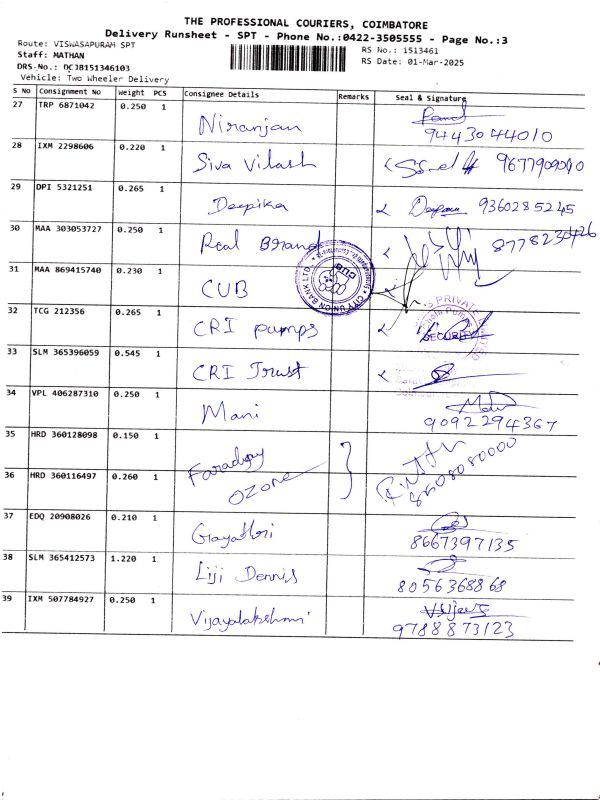 THE PROFESSIONAL COURIERS, COIMBATORE
Delivery Runsheet - SPT - Phone No.:0422-3505555 - Page No.:3
Route: VISWASAPURAM SPT
Staff: MATHAN
DRS-No.: DCJB151346103
Vehicle: Two Wheeler Delivery
RS No.: 1513461
RS Date: 01-Mar-2025
S No Consignment No Weight PCS Consignee Details Remarks Seal & Signature
27 TRP 6871042 0.250 1 Niranjan 9443044010
28 IXM 2298606 0.220 1 Siva Vilash 9677909040
29 DPI 5321251 0.265 1 Deepika 9360285245
30 MAA 303053727 0.250 1 Real Brand 8778230426
31 MAA 869415740 0.230 1 CUB
CITY UNION BANK LTD.
32 TCG 212356 0.265 1 CRI pumps
SECURITY
33 SLM 365396059 0.545 1 CRI Trust
34 VPL 406287310 0.250 1 Mani 9092294367
35 HRD 360128098 0.150 1 Faraday
36 HRD 360116497 0.260 1 Ozone
37 EDQ 20908026 0.210 1 Gayathri 8667397135
38 SLM 365412573 1.220 1 Liji Dennis 8056368868
39 IXM 507784927 0.250 1 Vijayalakshmi 9788873123